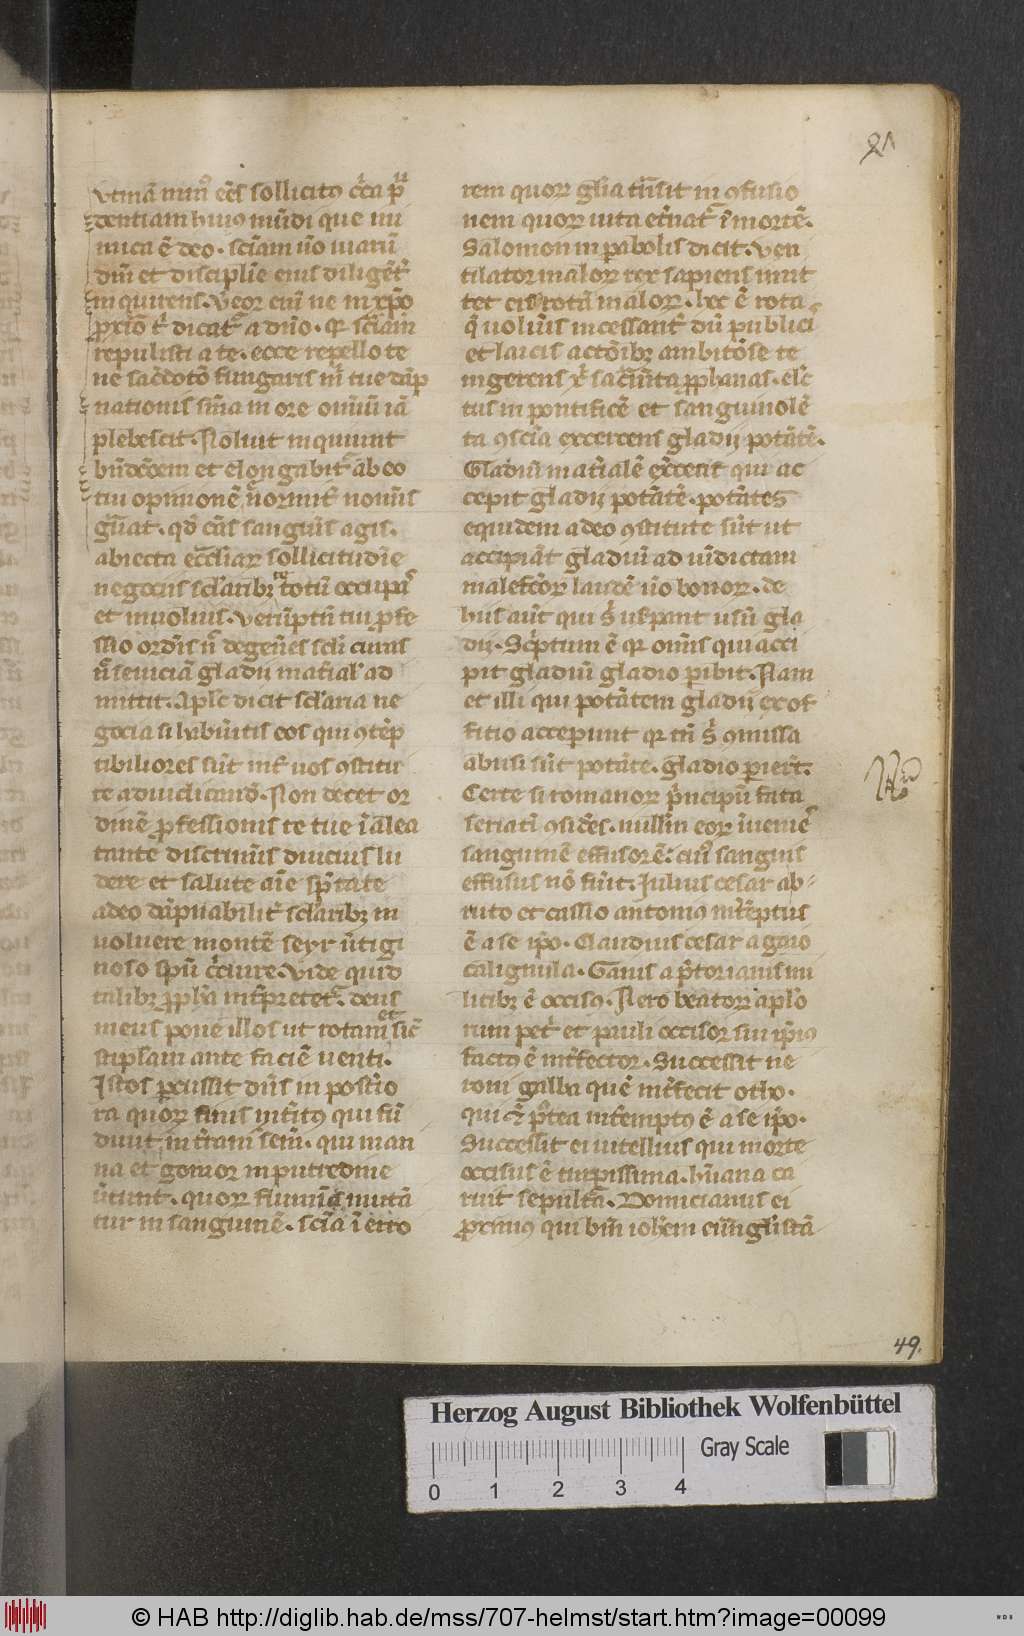 vtinā nun᷒ eēs sollicitꝰ c̄ca pͬ
dentiam huiꝰ mūdi que ini
mica ē deo. sc̄iam ūo marā
dm̄ et discipline eius diligēt᷒
inquirens. Veor eni ne in xp̄o
ꝓxio t᷒ dicat᷒ a dn̄o. qꝛ sc̄iam
repulisti a te. ecce repello te
ne sac̄dotō fungaris m᷒ tue dāp
nationis sm̄a in ore omniū iā
plebescit. Noluit inquiunt
bn̄dcōem et elongabit᷒ ab eo
tui opinionē
gūat. qd̄ cās sanguīs agis.
abiecta ecc̄liaꝝ sollicitudīe
negociis sc̄larib; totū occupaͬis
et inuoluis. Verūptn̄ tui ꝓfe
ssio ordīs
mittit. Apl̄s dicit sc̄laria ne
gocia si habūitis eos qui ꝯtēp
tibiliores sūt int᷒ uos ꝯstitui
te adiudicandū. Non decet or
dinē ꝓfessionis te tue ī alea
tante discriminis diucius lu
dere et salute aīe sp̄rate
adeo dāpnabilit᷒ sc̄larib; in
uoluere montē seyr ūtigi
noso spū c̄cuire. Vide quid
talib; ꝓph̄a int᷒pretet᷒. deus
meus pone illos ut rotam et sic᷒
stipulam ante faciē uenti.
Istos ꝑcussit dn̄s in post᷒io
ra quoꝝ finis int᷒itꝰ qui fū
dunt in t᷒ram sem̄. qui man
na et gomor in putredine
ūtunt. quoꝝ flumīa mutā
tur in sanguinē. sc̄ia ī erro
rem quoꝝ gl̄ia tn̄sit in ꝯfusio
nem quoꝝ uita et᷒nat᷒ ī mortē.
Salomon in ꝑabolis dicit. Ven
tilator maloꝝ rex sapiens imit
tet eis rotā maloꝝ. hec ē rota
q᷒ uoluis incessant᷒ dū publicis
et laicis actōib; ambitōse te
ingerens sac̄mta ꝓphanas. elc̄
tus in pontificē et sanguinolē
ta ꝯscīa excercens gladii potātē.
Gladiū mat᷒ialē exc̄ent qui ac
cepit gladii potātē. potātes
equidem a deo ꝯstitute sūt ut
accipiāt gladiū ad uīdictam
malefc̄oꝝ laudē ūo bonoꝝ. de
hus aūt qui s᷒ usurpant usū gla
dii. Sc᷒ptum ē qꝛ om̄is qui acci
pit gladiū gladio ꝑibit. Nam
et illi qui potātem gladii ex of
fitio acceperunt qꝛ tn̄ s᷒ ꝯmissa
abusi sūt potāte. gladio ꝑiert̄.
Certe si romanoꝝ p᷒ncipū fata
seriati ꝯsid̄es. nullū eoꝝ īuenies
sanguinē effusorē. cui᷒ sanguis
effusus nō fūit. Iulius cesar ab
ruto et cassio antoniꝰ int᷒eptus
ē a se ip̄o. Claudius cesar a gaio
caligula. Gaius a p᷒torianis mi
litib; ē occisꝰ. Nero beatoꝝ aplō
rum pet᷒ et pauli occisor sui ip̄ius
factꝰ ē int᷒fector. Successit ne
roni galba quē int᷒fecit otho.
qui ⁊ p᷒tea int᷒emptꝰ ē a se ip̄o.
Successit ei uitellius qui morte
occisus ē turpissima. hūana ca
ruit sepult᷒a. Domicianus ei
ꝓximꝰ qui bm̄ ioh̄em eūnglistā
49.
Herzog August Bibliothek Wolfenbüttel
Gray Scale
0 1 2 3 4
© HAB http://diglib.hab.de/mss/707-helmst/start.htm?image=00099